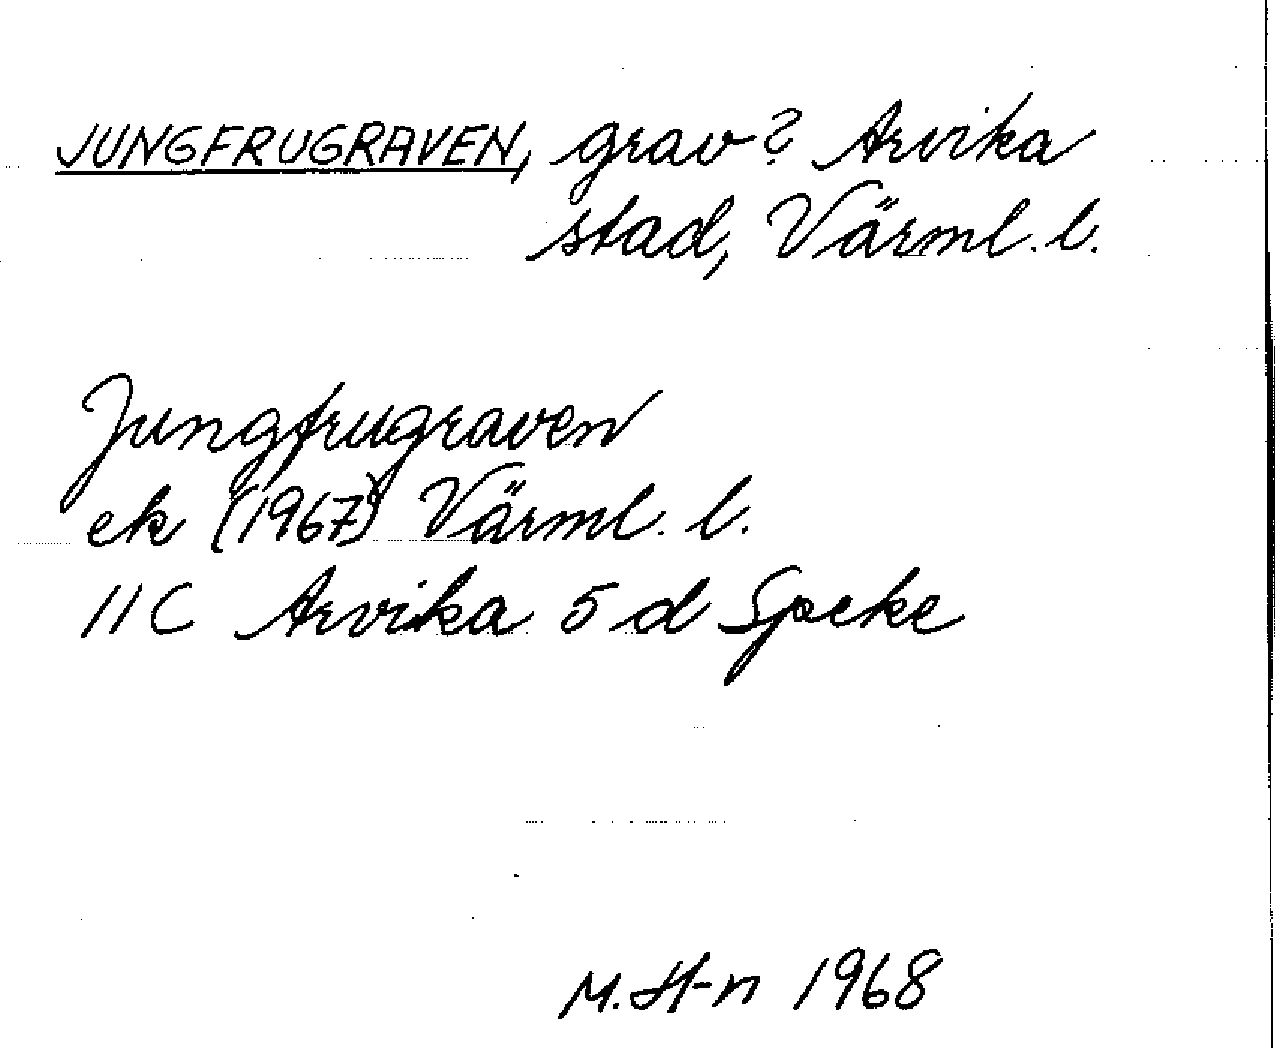 JUNGFRUGRAVEN, grav? Arvika
stad, Värml. l.
Jungfrugraven
ek (1967) Värml. l.
11C Arvika 5 d Speke
M. H-n 1968